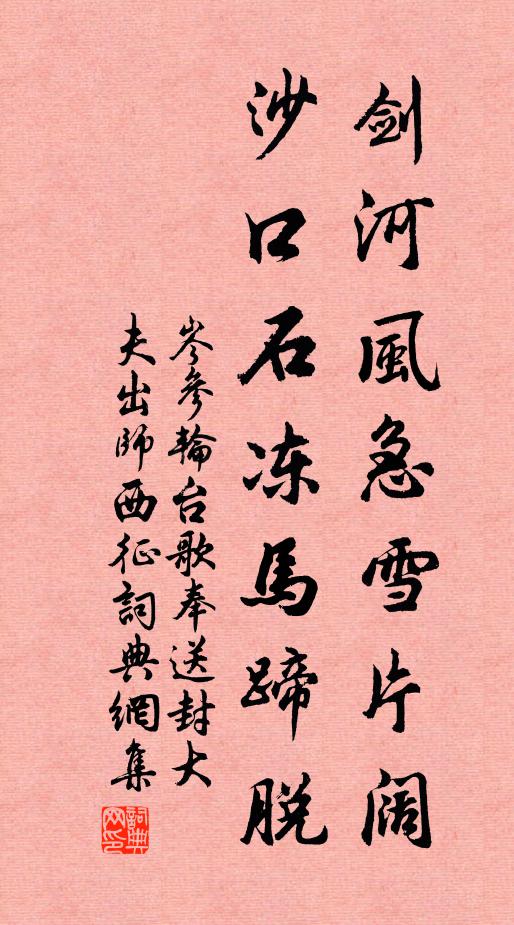 剑河風急雪片阔
沙口石冻馬蹄脱
岑参輪台歌奉送封大
夫出師西征詞典網集
詞典网印